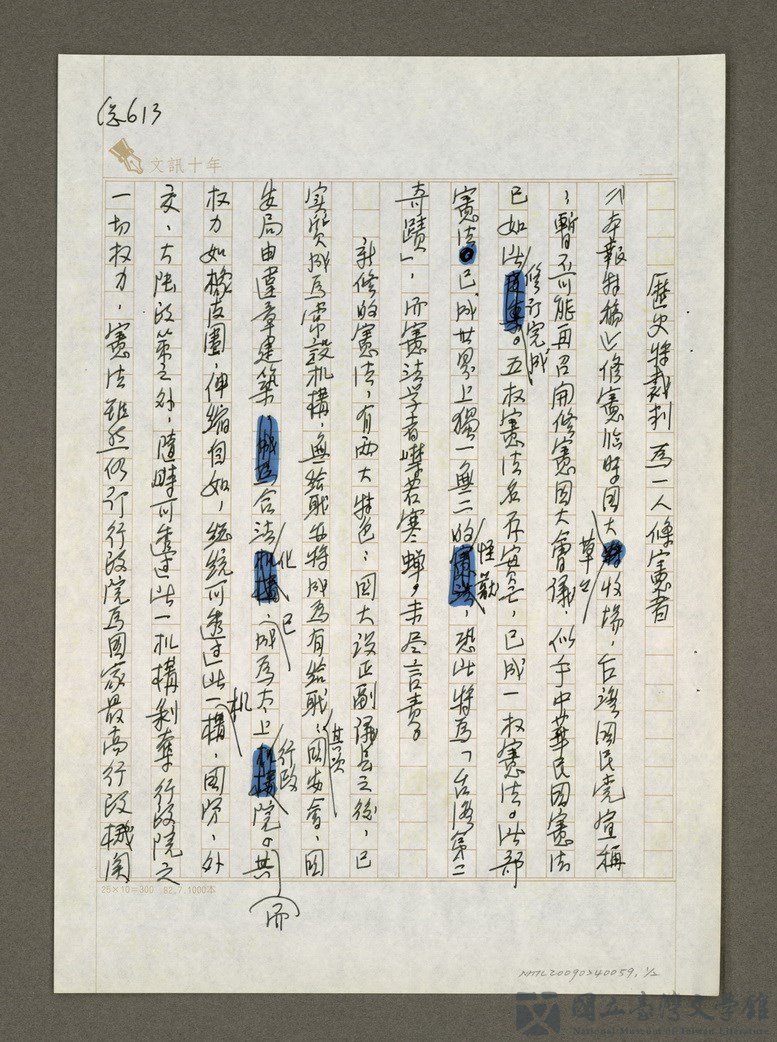 (總613
文訊十年
歷史將裁判為一人修憲者
《本報特稿》修憲臨時國大草草收場,台灣國民党宣稱
:暫不可能再召開修憲國大會議,似乎中華民國憲法
已如此修訂完成。五权憲法名存實亡,已成一权憲法。此部
憲法已成世界上獨一無二的怪獸,恐此將為「台灣第二
奇蹟」,而憲法学者噤若寒蟬,未尽言責。
新修的憲法,有兩大特色:國大设正副议長之後,已
实質成為常設机構,無給职也將成為有給职;其次國安會、國
安局由違章建築,合法化已成為太上行政院。而其
权力如橡皮圈,伸縮自如,統統可透过此一机構,国防,外
交、大陸政策之外,隨時可透过此一机構剥奪行政院之
一切权力,憲法雖然修订行政院為国家最高行政機関
25×10=300 82.7.1000本
NMTL20090240059, 1/2
國立臺灣文學館
National Museum of Taiwan Literature